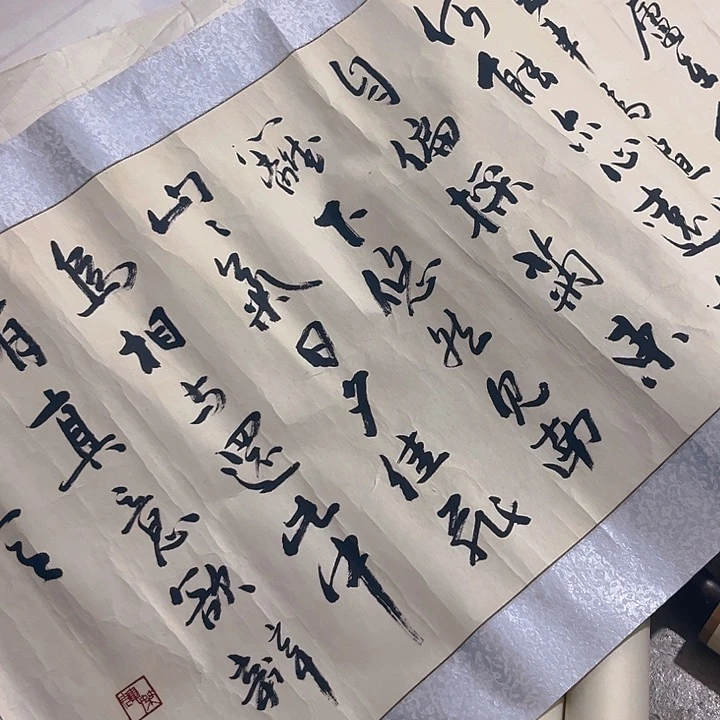 廬在
車馬喧
何能尒心遠
自偏採菊東
籬下悠然見南
山々氣日夕佳飛
鳥相与還此中
有真意欲辨
言